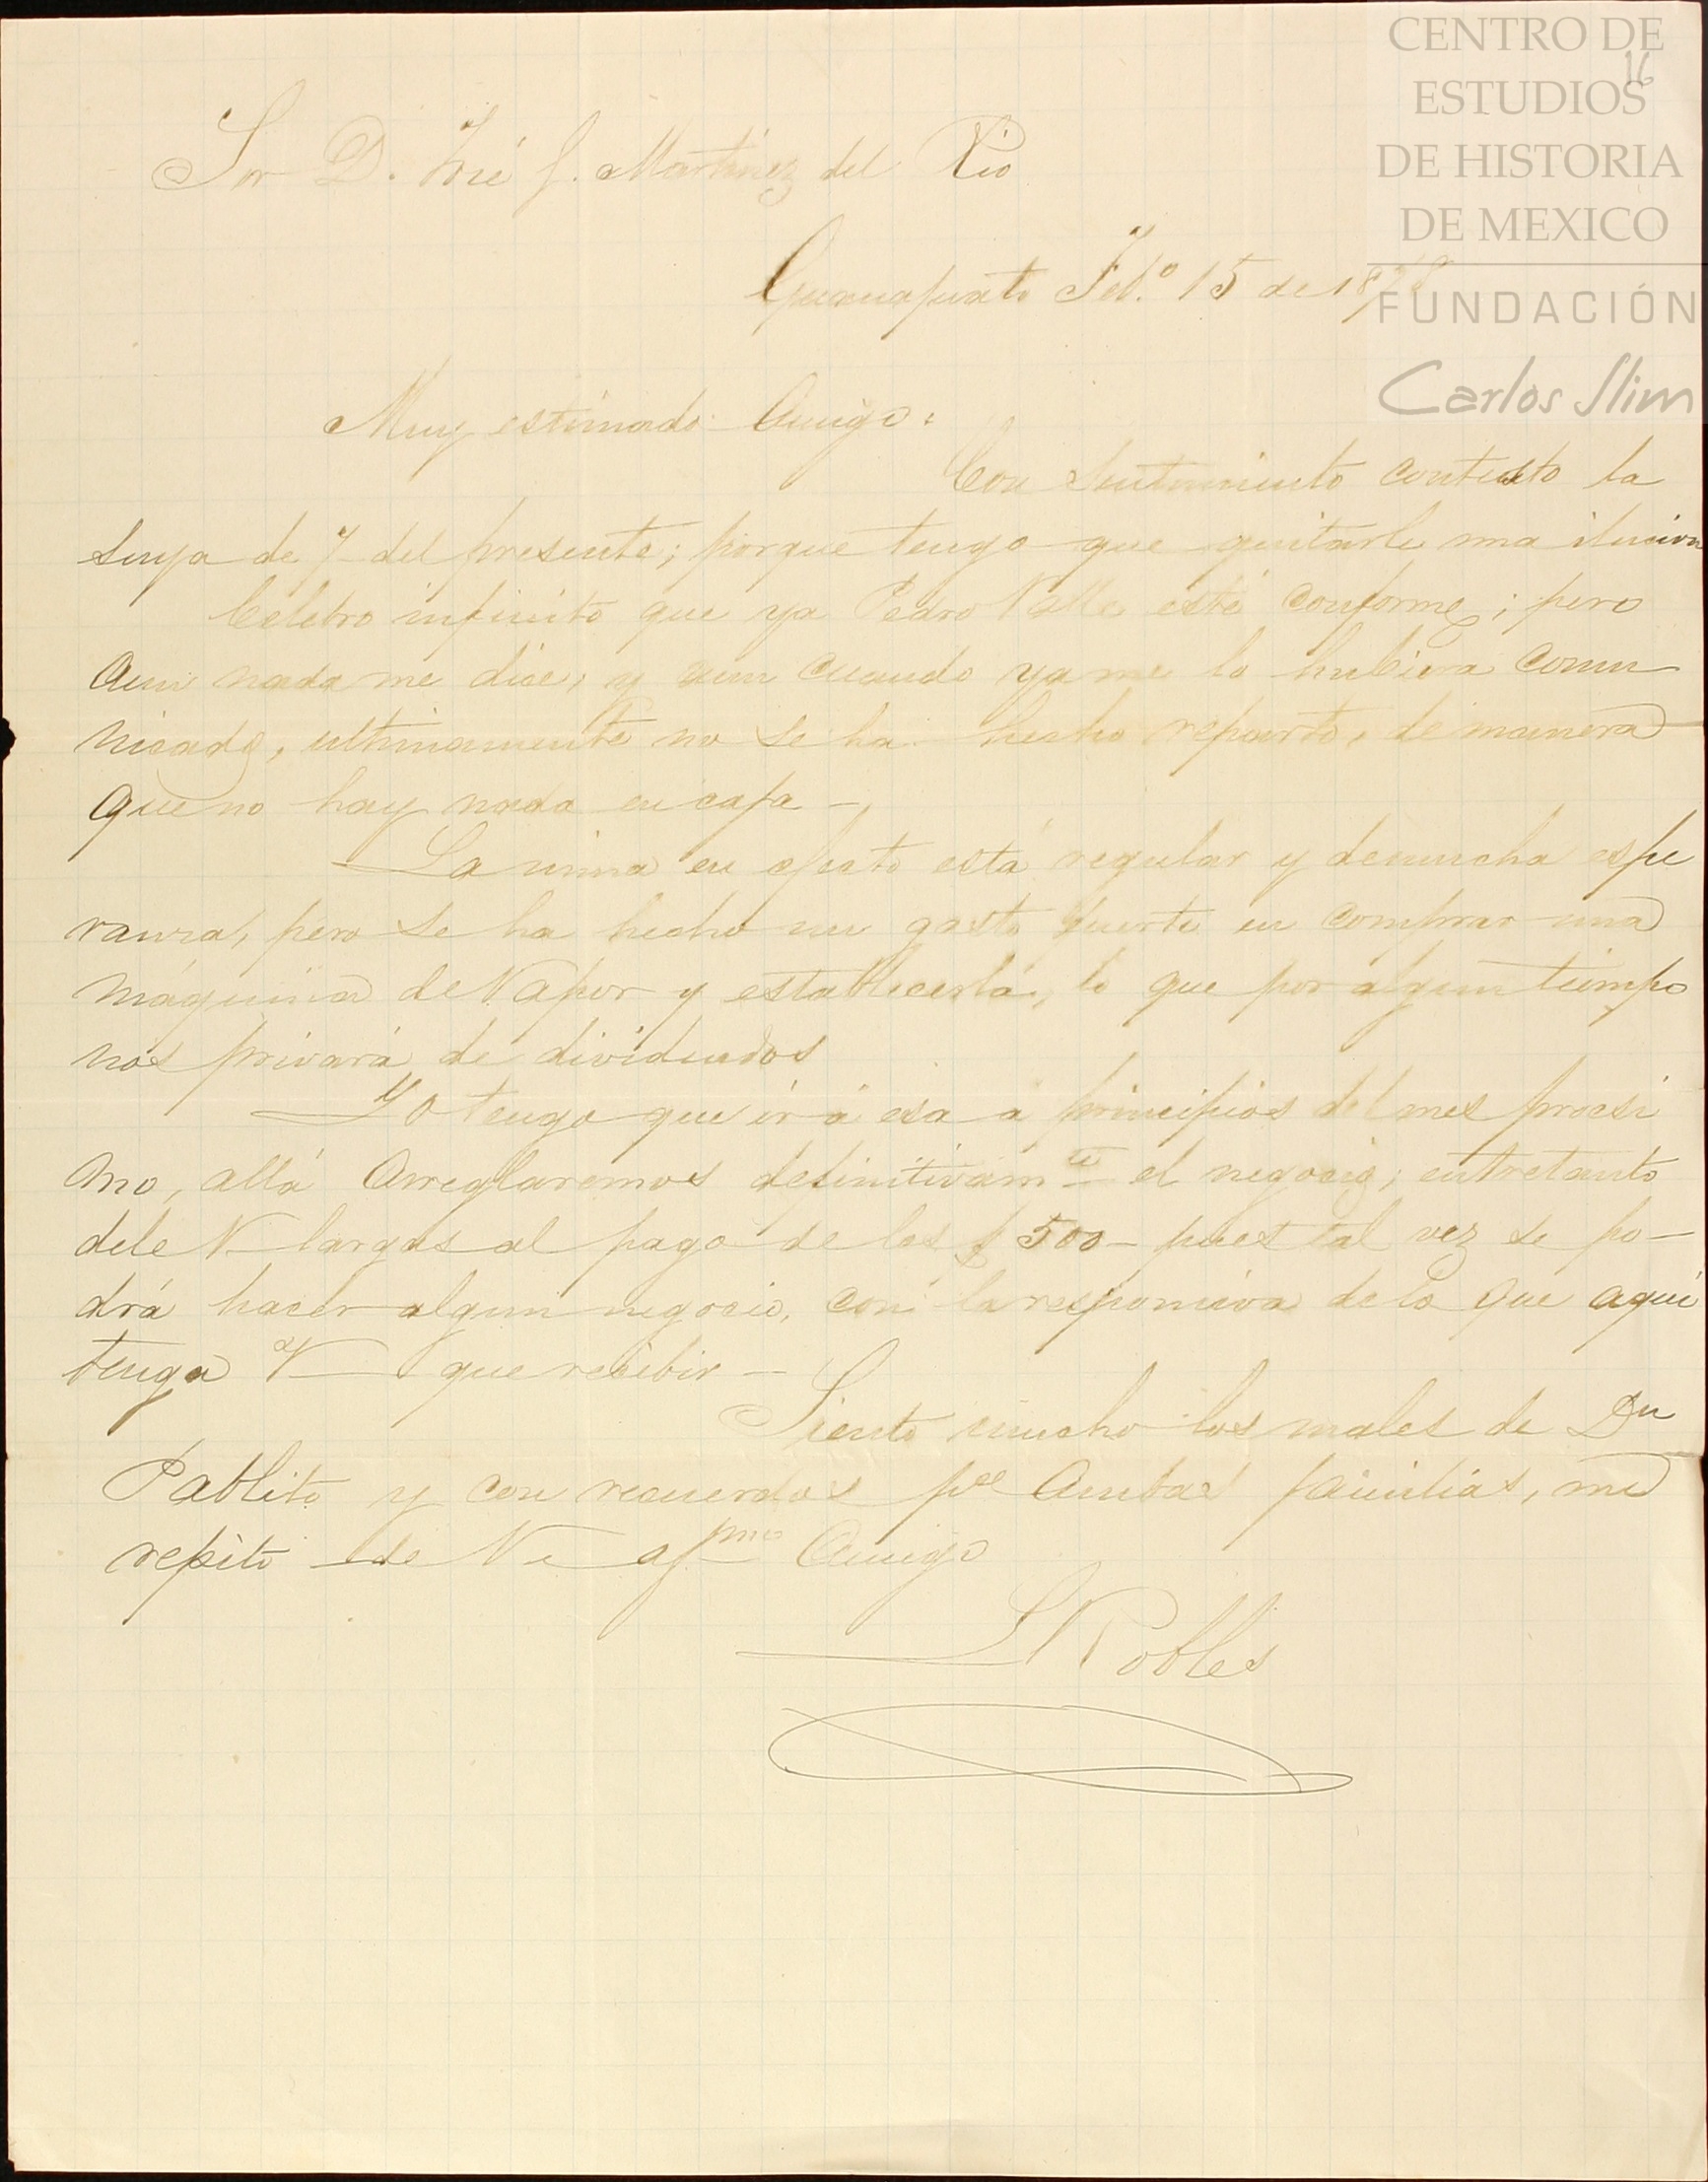 CENTRO DE
ESTUDIOS
DE HISTORIA
DE MEXICO
FUNDACIÓN
Carlos Slim
16
Sor D. José J. Martinez del Rio
Guanajuato Feb.o 15 de 1878
Muy estimado Amigo:
Con sentimiento contesto la
suya de 7 del presente; porque tengo que quitarle una ilucion
Celebro infinito que ya Pedro Valle esté conforme; pero
aun nada me dice, y aun cuando ya me lo hubiera comu
nicado, ultimamente no se ha hecho reparto, de manera
que no hay nada en caja –
La mina en efecto está regular y de mucha espe
ranza, pero se ha hecho un gasto fuerte en comprar una
máquina de Vapor y establecerla, lo que por algun tiempo
nos privará de dividendos
Yo tengo que ir á esa á principios del mes procsi
mo, allá arreglaremos definitivamte el negocio; entretanto
dele V largas al pago de los $ 500 – pues tal vez se po–
drá hacer algun negocio, con la responsiva de lo que aqui
tenga V que recibir –
Siento mucho los males de Dn
Pablito y con recuerdos pa ambas familias, me
repito de V afmo Amigo
L Robles